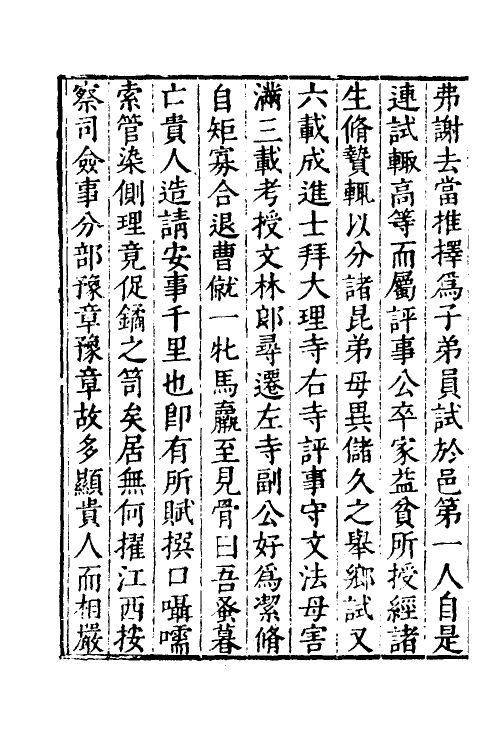 弗謝去當推擇爲子弟員試於邑第一人自是
連試輒高等而屬評事公卒家益貧所授經諸
生脩贄輒以分諸昆弟母異儲久之舉鄉試又
六載成進士拜大理寺右寺評事守文法母害
滿三載考授文林郎尋遷左寺副公好爲潔脩
自矩寡合退曹僦一牝馬羸至見骨曰吾蚤暮
亡貴人造請安事千里也卽有所賦撰口囁嚅
索管染側理竟促鐍之笥矣居無何擢江西按
察司僉事分部豫章豫章故多顯貴人而相嚴